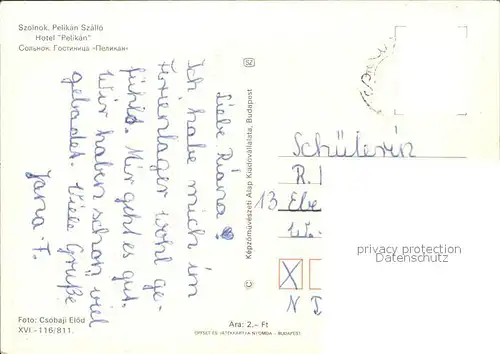 Szolnok. Pelikán Szálló
Hotel "Pelikán"
Сольнок. Гостиница «Пеликан»
Liebe Riana!
Ich habe mich im
Ferienlager wohl ge-
fühlt. Mir geht es gut.
Wir haben schon viel
gebadet. Viele Grüße
Jana F.
Foto: Csobaji Előd
XVI.-116/811.
Ára: 2,- Ft
OFFSET ÉS JÁTÉKKÁRTYA NYOMDA - BUDAPEST
© Képzőművészeti Alap Kiadóvállalata, Budapest
Schülerin
R.
13
X
N
privacy protection
Datenschutz